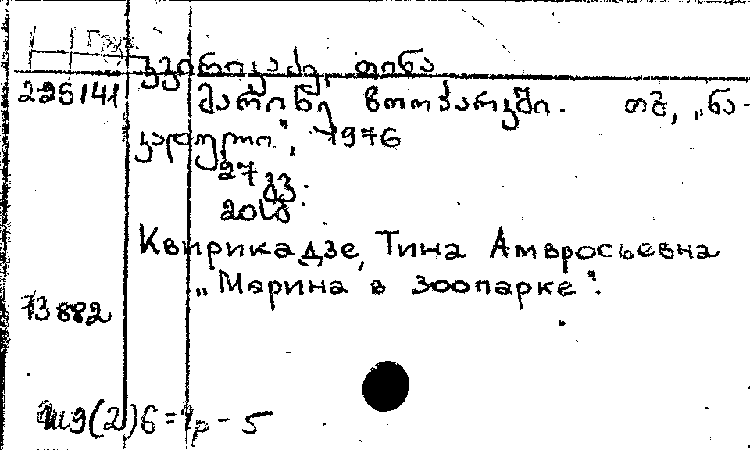 კვირიკაძე, თინა
226141
მარინე ზოოპარკში. თბ., „ნა-
კადული“, 1976
27 გვ.
20სმ
Квирикадзе, Тина Амвросьевна
„Марина в зоопарке“.
73882
(2)6=1р-5